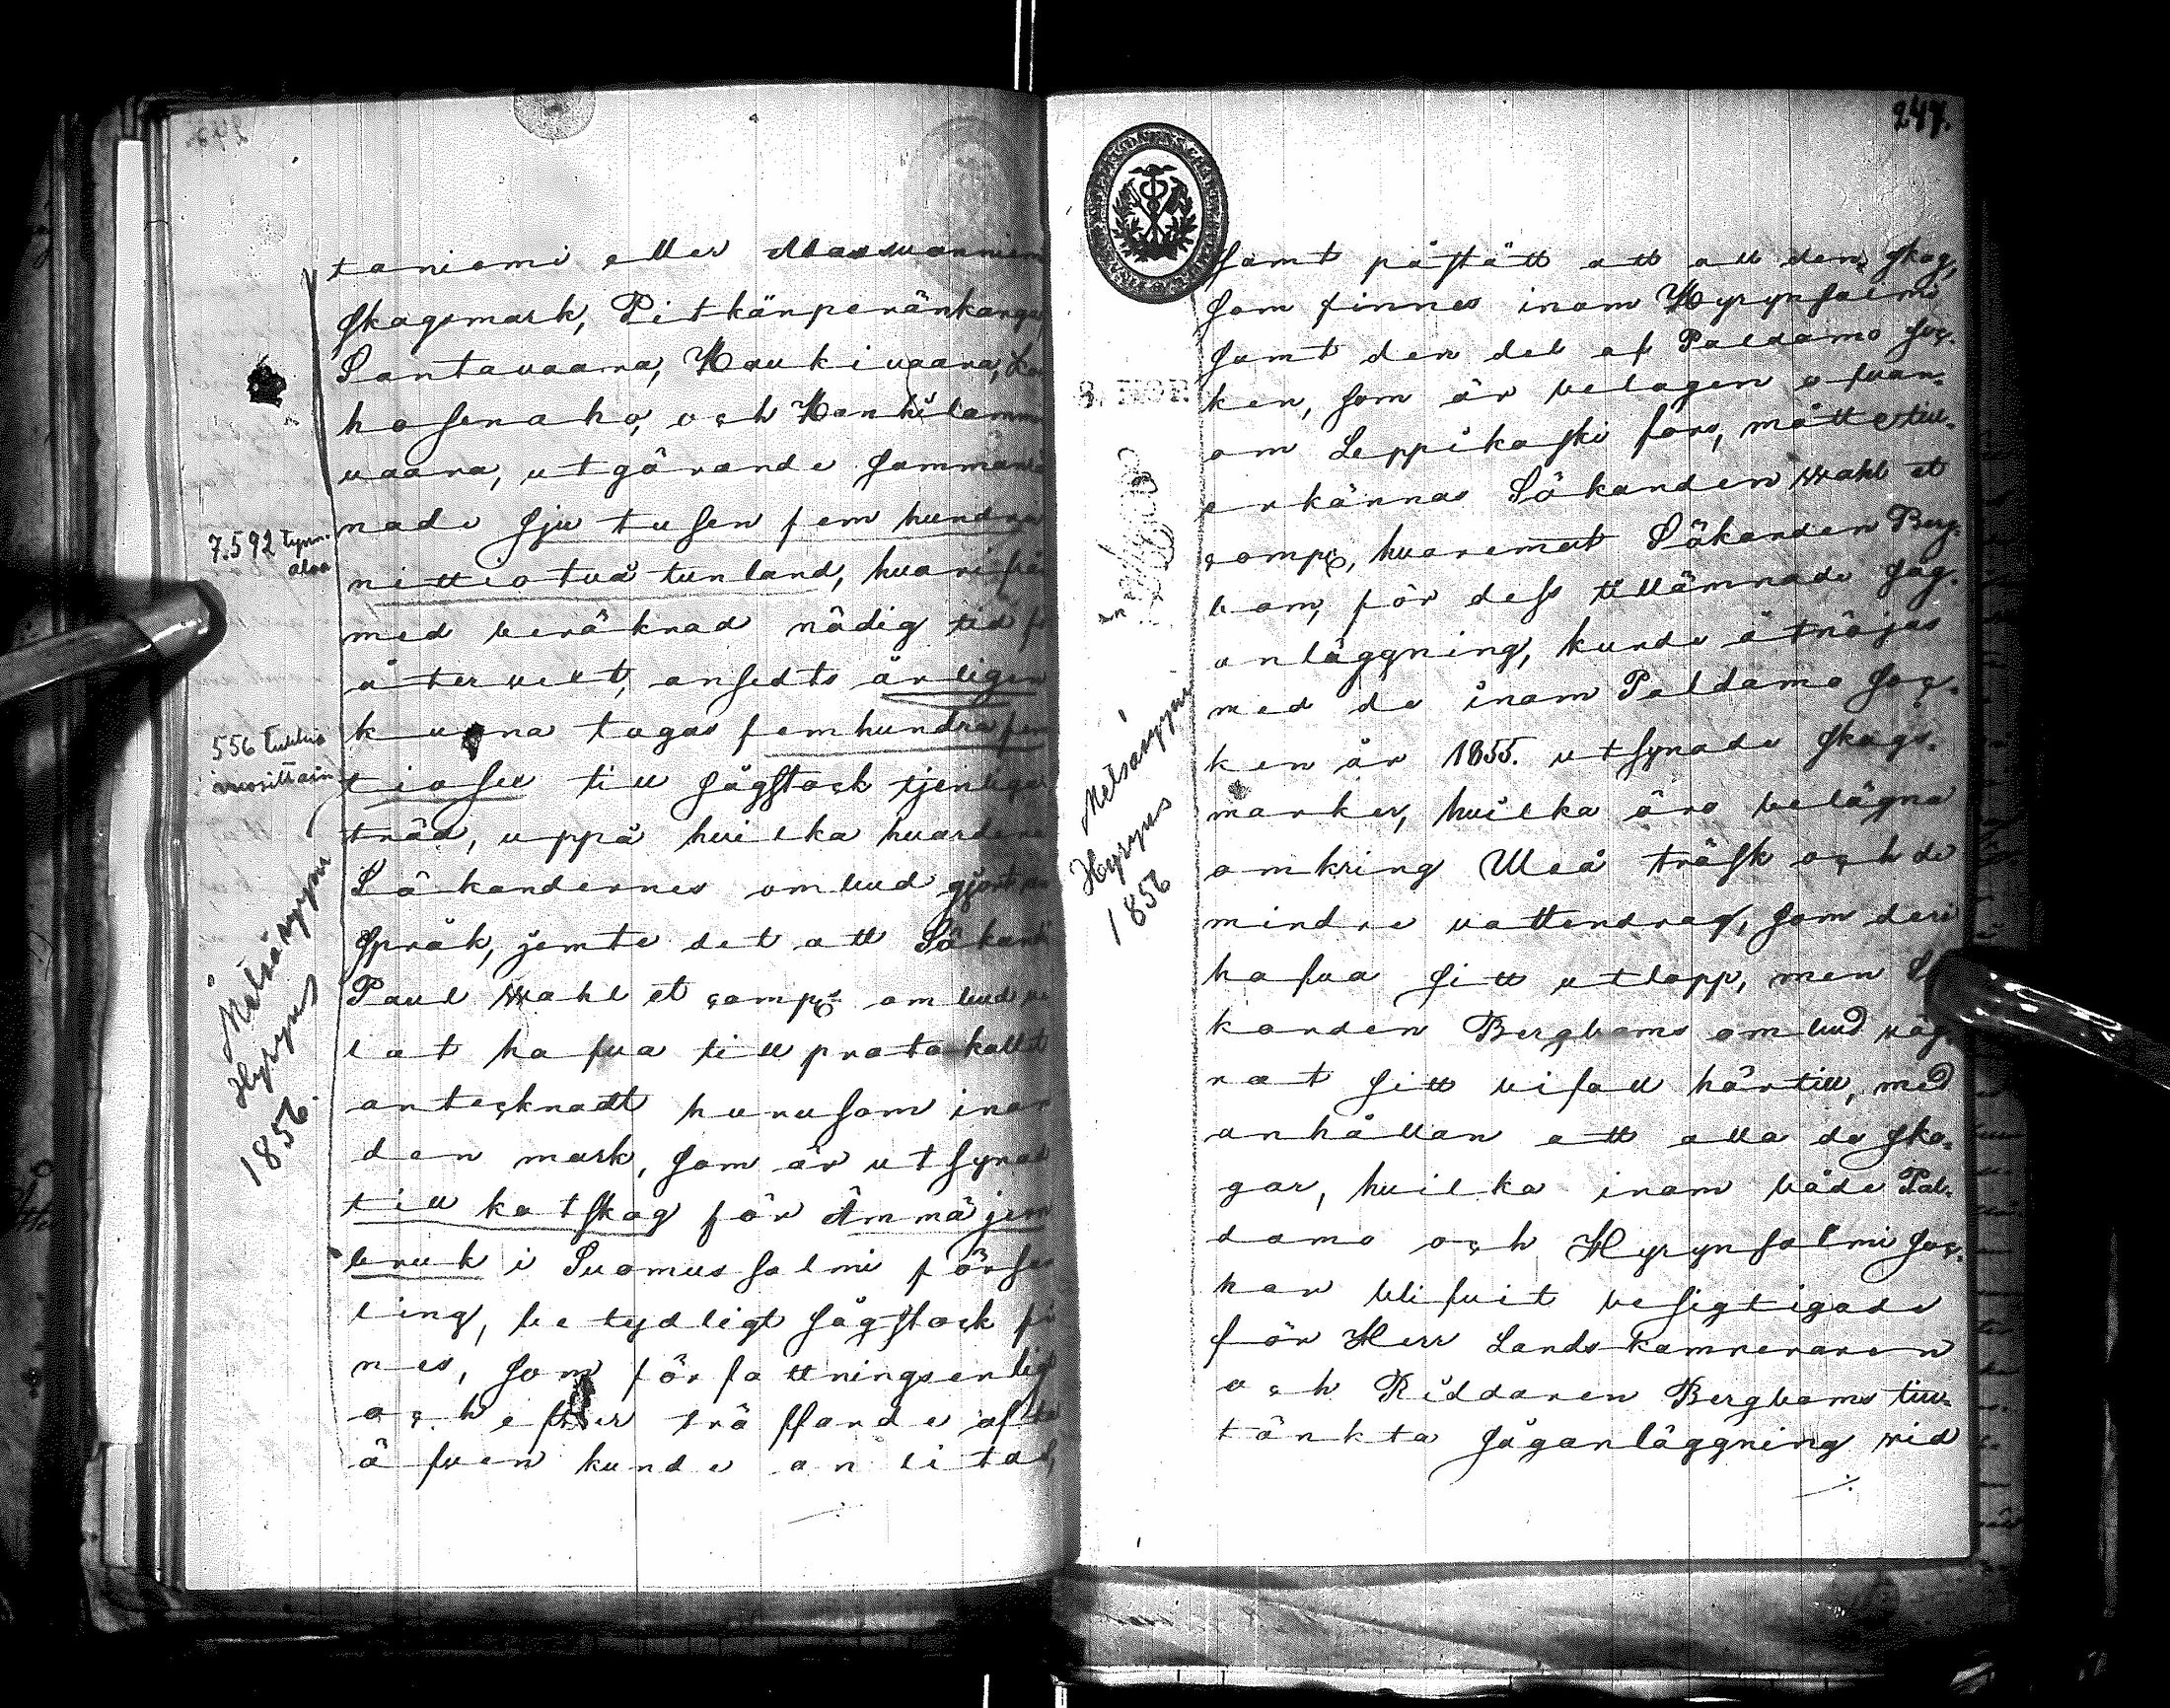 taniemi eller
skogsmark, Pitkänperänkangas
Santavaara, Haukivaara,
hosenaho, och
vaara, utgörande sammanräk
nade sju tusen fem hundra
nittiotvå tunland, hvarifrån
med beräknad nödig tid för
återvext, ansedts årligen
kunna tagas femhundrafem
tiosex till sågstock tjenliga
träd, uppå hvilka hvardera
Sökandernes ombud gjort an
språk, jemte det att Sökande
Paul Wahl et comps ombud
låt hafva till protokollet
antecknadt hurusom inom
den mark, som är utsynad
till kolskog för Ämmä jern
bruk i Suomussalmi förs
ling, betydligt sågstock fin
nes, som författningsenligt
och efter träffande aftal
äfven kunde anlitas,
7.592 tynn.
alaa
556 tukkia
vuosittain
Metsäsyyni
Hyryns
1856.
247.
samt påstått att all den skog,
som finnes inom Hyrynsalmi
samt den del af Paldamo soc-
ken, som är belägen ofvan-
om Leppikoski fors, måtte till-
erkännas Sökanden Wahl et
comp, hvaremot Sökanden Berg-
bom, för dess tillämnade såg-
anläggning, kunde åtnöjas
med de inom Paldamo soc-
ken år 1855. utsynade skogs-
marker, hvilka äro belägna
omkring Uleå träsk och de
mindre vattendrag, som deri
hafva sitt utlopp, men Sö
kanden Bergboms ombud väg-
rat sitt bifall härtill, med
anhållan att alla de sko-
gar, hvilka inom både Pal-
damo och Hyrynsalmi soc-
knar blifvit besigtigade
för Herr Landskamreraren
och Riddaren Bergboms till-
tänkta såganläggning vid
Metsäsyyni
Hyryns
1856